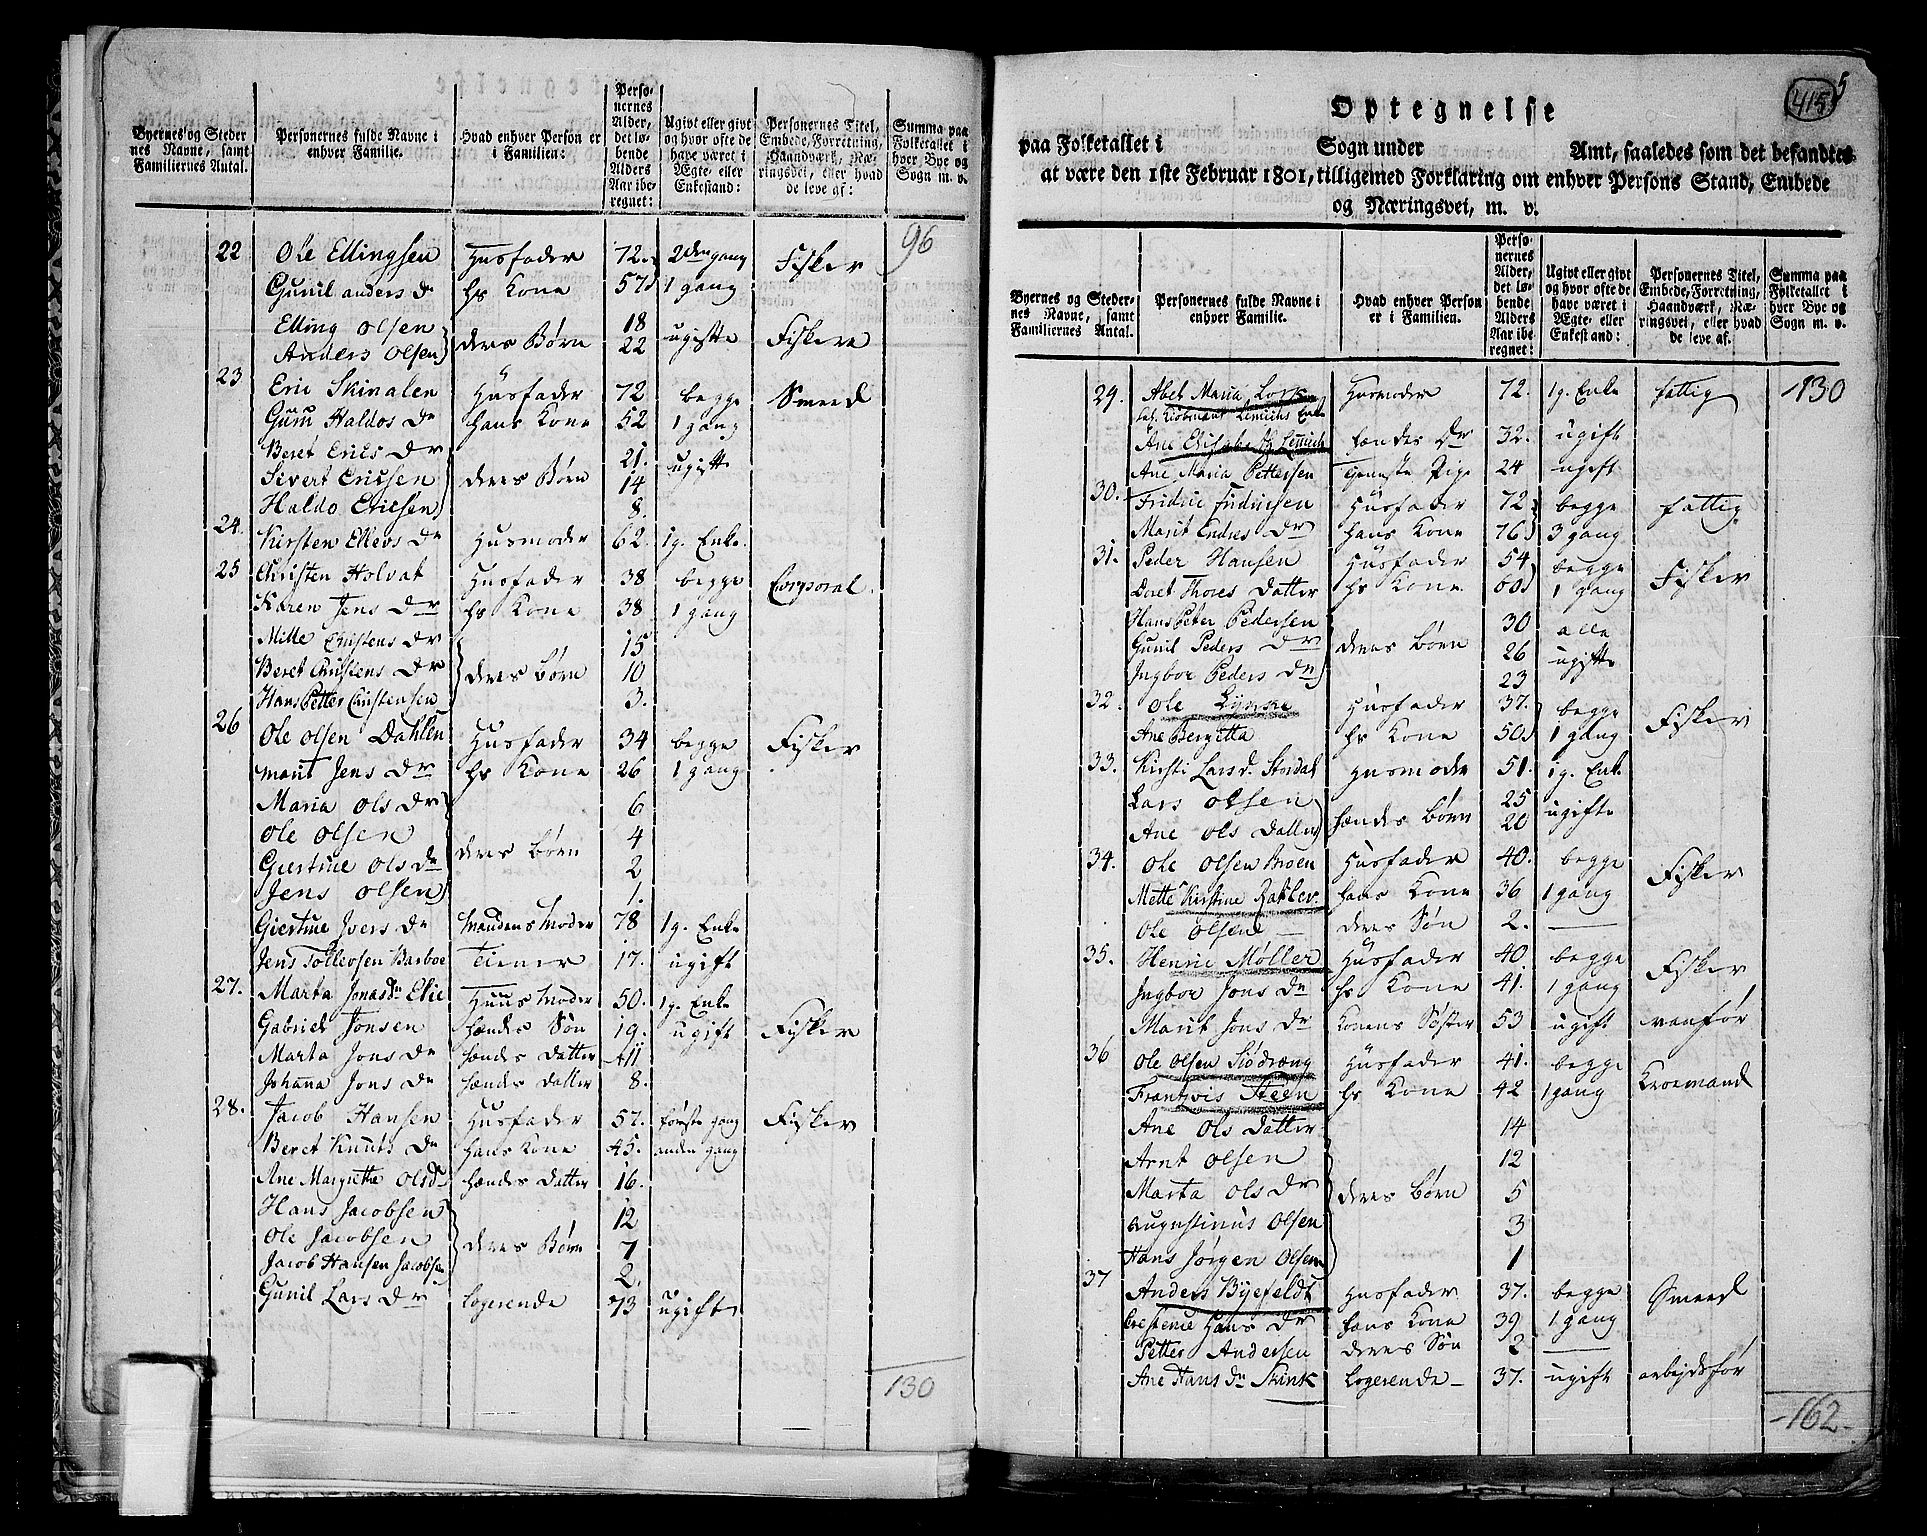 Byernes og Steder
nes Navne, samt
Familiernes Antal.
Personernes fulde Navne i
enhver Familie.
Hvad enhver Person er
i Familien:
Perso-
nernes
Alder,
det lø-
bende
Alders
Aar ibe-
regnet:
Ugivt eller givt
og hvor ofte de
have været i
Ægte- eller
Enkestand:
Personernes Titel,
Embede, Forretning,
Haandværk, Næ-
ringsvei, eller hvad
de leve af:
Summa paa
Folketallet i
hver Bye og
Sogn m. v.
22 Ole Ellingsen Husfader 72. 2den gang Fisker 96
Gunil anders Dr hs Kone 57 1 gang
Elling Olsen 18
Anders Olsen deres Børn 22 ugifte Fiskere
23 Eric Skinalen Husfader 72 begge Smeed
Guru Haldos Dr hans Kone 52 1 gang
Beret Erics Dr 21.
Sivert Ericsen deres Børn 14 ugifte
Haldo Ericsen 8.
24. Kirsten Ellevs Dr Husmoder 62. 1g. Enke.
25 Christen Holvat Husfader 38 begge Corporal.
Karen Jens Dr hs Kone 38 1 gang
Mille Christens Dr 15
Beret Christens Dr deres børn 10
Hans Petter Christensen 3.
26 Ole Olsen Dahlen Husfader 34 begge Fisker
marit Jens Dr hs Kone 26 1 gang
Maria Ols Dr 6
Ole Olsen 4
Giertrue Ols Dr deres børn 2
Jens Olsen 1.
Giertrue Ivers Dr Mandens Moder 78 1g. Enke
Jens Tollevsen Barboe Teiener 17. ugift
27. Marta Jonas Dr Elie Huus Moder 50. 1g. Enke
Gabriel Jonsen hendes Søn 19. ugift Fisker
Marta Jons Dr hendes datter 11
Johanna Jons Dr hendes datter 8.
28. Jacob Hansen Husfader 57. første gang Fisker
Beret Knuts Dr hans Kone 45. anden gang
Ane Margrethe Olsd hendes datter 16.
Hans Jacobsen 12
Ole Jacobsen deres Børn 7
Jacob Hansen Jacobsen 2.
Gunil Lars Dr logerende 73 ugift
130
415 5
Optegnelse
paa Folketallet i Sogn under Amt, saaledes som det befandtes
at være den 1ste Februar 1801, tilligemed Forklaring om enhver Persons Stand, Embede
og Næringsvei, m. v.
Byernes og Steder-
nes Navne, samt
Familiernes Antal.
Personernes fulde Navne i
enhver Familie.
Hvad enhver Person
er i Familien.
Perso-
nernes
Alder,
det lø-
bende
Alders
Aar ibe-
regnet:
Ugivt eller givt
og hvor ofte de
have været i
Ægte- eller
Enkestand:
Personernes Titel,
Embede, Forretning,
Haandværk, Næ-
ringsvei, eller hvad
de leve af.
Summa paa
Folketallet i
hver Bye og
Sogn m. v.
29. Abel Maria Lork Husmoder 72. 1g. Enke fattig 130
Sal. Kiøbmand Lemichs Enke
Ane Elisabeth Lemich hendes Dr 32. ugift
Ane Maria Pettersen tieneste Pige 24 ugift
30. Fridric Fridricsen Husfader 72 begge fattig
Marit Endres Dr hans Kone 76 3 gang
31. Peder Hansen Husfader 54 begge Fisker
Beret Thores Datter hs Kone. 60 1 gang
Hans Peter Pedersen 30 alle
Gunil Peders Dr deres børn 26 ugifte
Ingbor Peders Dr 23
32. Ole Lynske Husfader 37. begge Fisker
Ane Bergitta hs Kone 50. 1 gang
33. Kirsti Lars d. Stordal Husmoder 51. 1g. Enke
Lars Olsen hendes børn 25 ugifte
Ane Ols Datter 20
34. Ole Olsen Broen Husfader 40. begge Fisker
Mette Kirstine Raklev. hans Kone 36 1 gang
Ole Olsen deres Søn 2.
35. Henric Møller Husfader 40 begge Fisker
Ingbor Jons Dr hs Kone 41. 1 gang
Marit Jons Dr Konens Søster 53 ugift vanfør
36 Ole Olsen Siødræng Husfader 41. begge Kroemand
Frantzis Steen hs Kone 42 1 gang
Ane Ols Datter 14
Arnt Olsen 12
Marta Ols Dr deres børn 5
Augustinus Olsen 3
Hans Jørgen Olsen 1
37 Anders Byefeldt Husfader 37. begge Smeed
Crestense Hans Dr hans Kone 39 1 gang
Petter Andersen deres Søn 2
Ane Hans Dr Skink logerende 37. ugift arbejdsfør
162